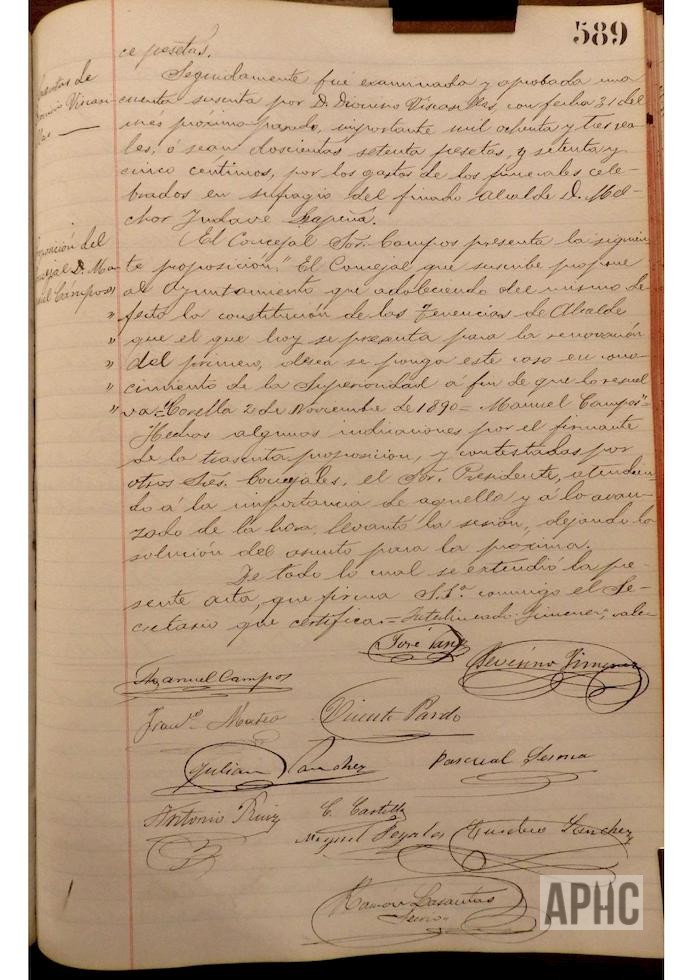 589
ce pesetas.
Cuentas de
Dionisio Viscasi-
llas
Seguidamente fué examinada y aprobada una
cuenta suscrita por D. Dionisio Viscasillas, con fecha 31 del
més próximo pasado, importante mil ochenta y tres rea-
les, ó sean doscientas setenta pesetas, y setenta y
cinco céntimos, por los gastos de los funerales cele-
brados en sufragio del finado Alcalde D. Mel-
chor Yudave Lapeña.
Proposición del
Concejal D. Ma-
nuel Campos
El Concejal Sor. Campos presenta la siguien-
te proposición." El Concejal que suscribe propone
al Ayuntamiento que adoleciendo del mismo de-
" fecto la constitución de las Tenencias de Alcalde
" que el que hoy se presenta para la renovación
" del primero, desea se ponga este caso en cono-
" cimiento de la Superioridad á fin de que lo resuel
" va = Corella 2 de Noviembre de 1890 = Manuel Campos"=
Hechas algunas indicaciones por el firmante
de la trascrita proposicion, y contestadas por
otros Sres. Concejales, el Sor. Presidente, atendien-
do á la importancia de aquella y á lo avan-
zado de la hora, levantó la sesión, dejando la
solución del asunto para la próxima.
De todo lo cual se extendió la pre-
sente acta, que firma S.Sª. conmigo el Se-
cretario que certifica = Interlineado = Jimenez, vale =
José Sanz
Severino Jimenez
Manuel Campos
Franco. Mateo
Vicente Pardo
Julian Sanchez
Pascual Sesma
Antonio Ruiz
C. Castilla
Miguel Peralos
Eusebio Sanchez
Ramón Lasantas
Secrio.
APHC